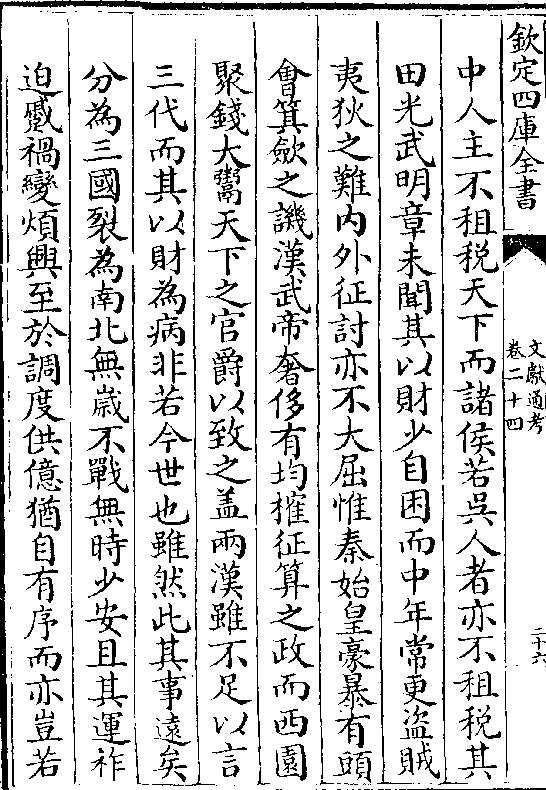 欽定四庫全書
文獻通考
卷二十四
二十六
中人主不租税天下而諸侯若呉人者亦不租税其
田光武明章未聞其以財少自困而中年常更盜賊
夷狄之難内外征討亦不大屈惟秦始皇豪暴有頭
會箕歛之譏漢武帝奢侈有均榷征算之政而西園
聚錢大鬻天下之官爵以致之盖兩漢雖不足以言
三代而其以財為病非若今世也雖然此其事遠矣
分為三國裂為南北無嵗不戰無時少安且其運祚
迫蹙禍變煩興至於調度供億猶自有序而亦豈若